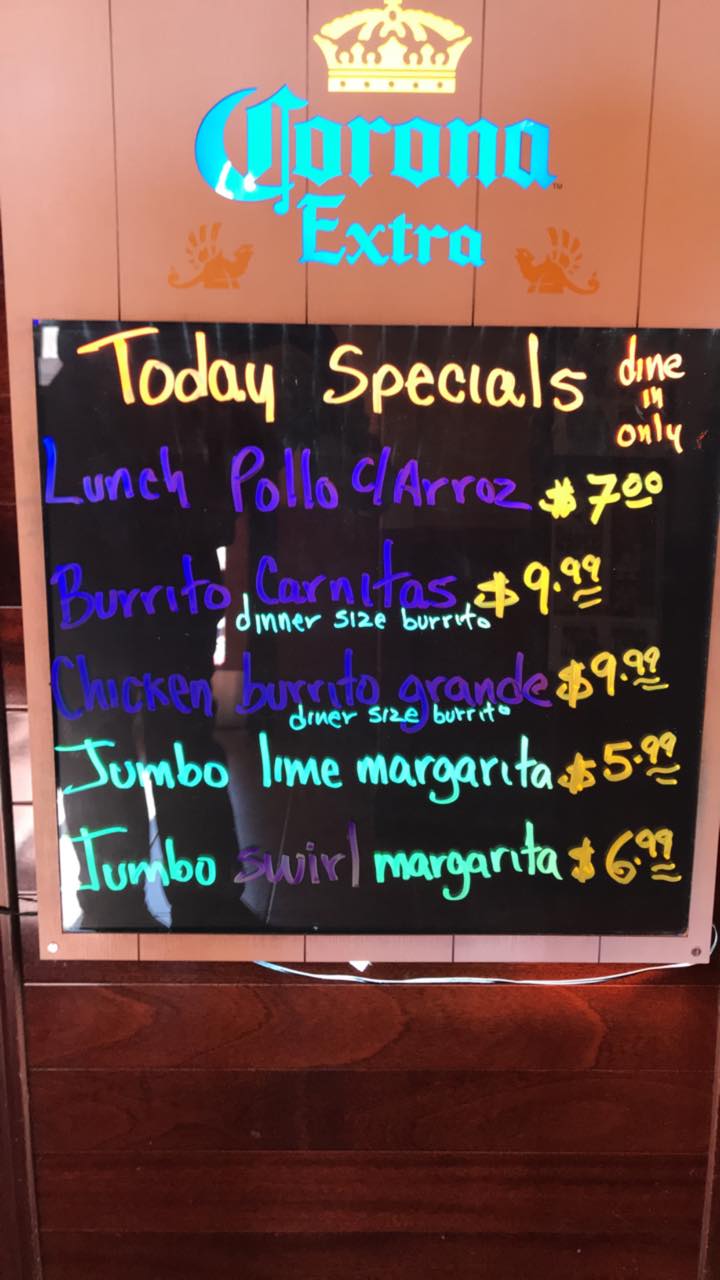 Corona
Extra
Today Specials
dine
in
only
Lunch Pollo c/Arroz $7.00
Burrito Carnitas $9.99
dinner size burrito
Chicken burrito grande $9.99
diner size burrito
Jumbo lime margarita $5.99
Jumbo swirl margarita $6.99